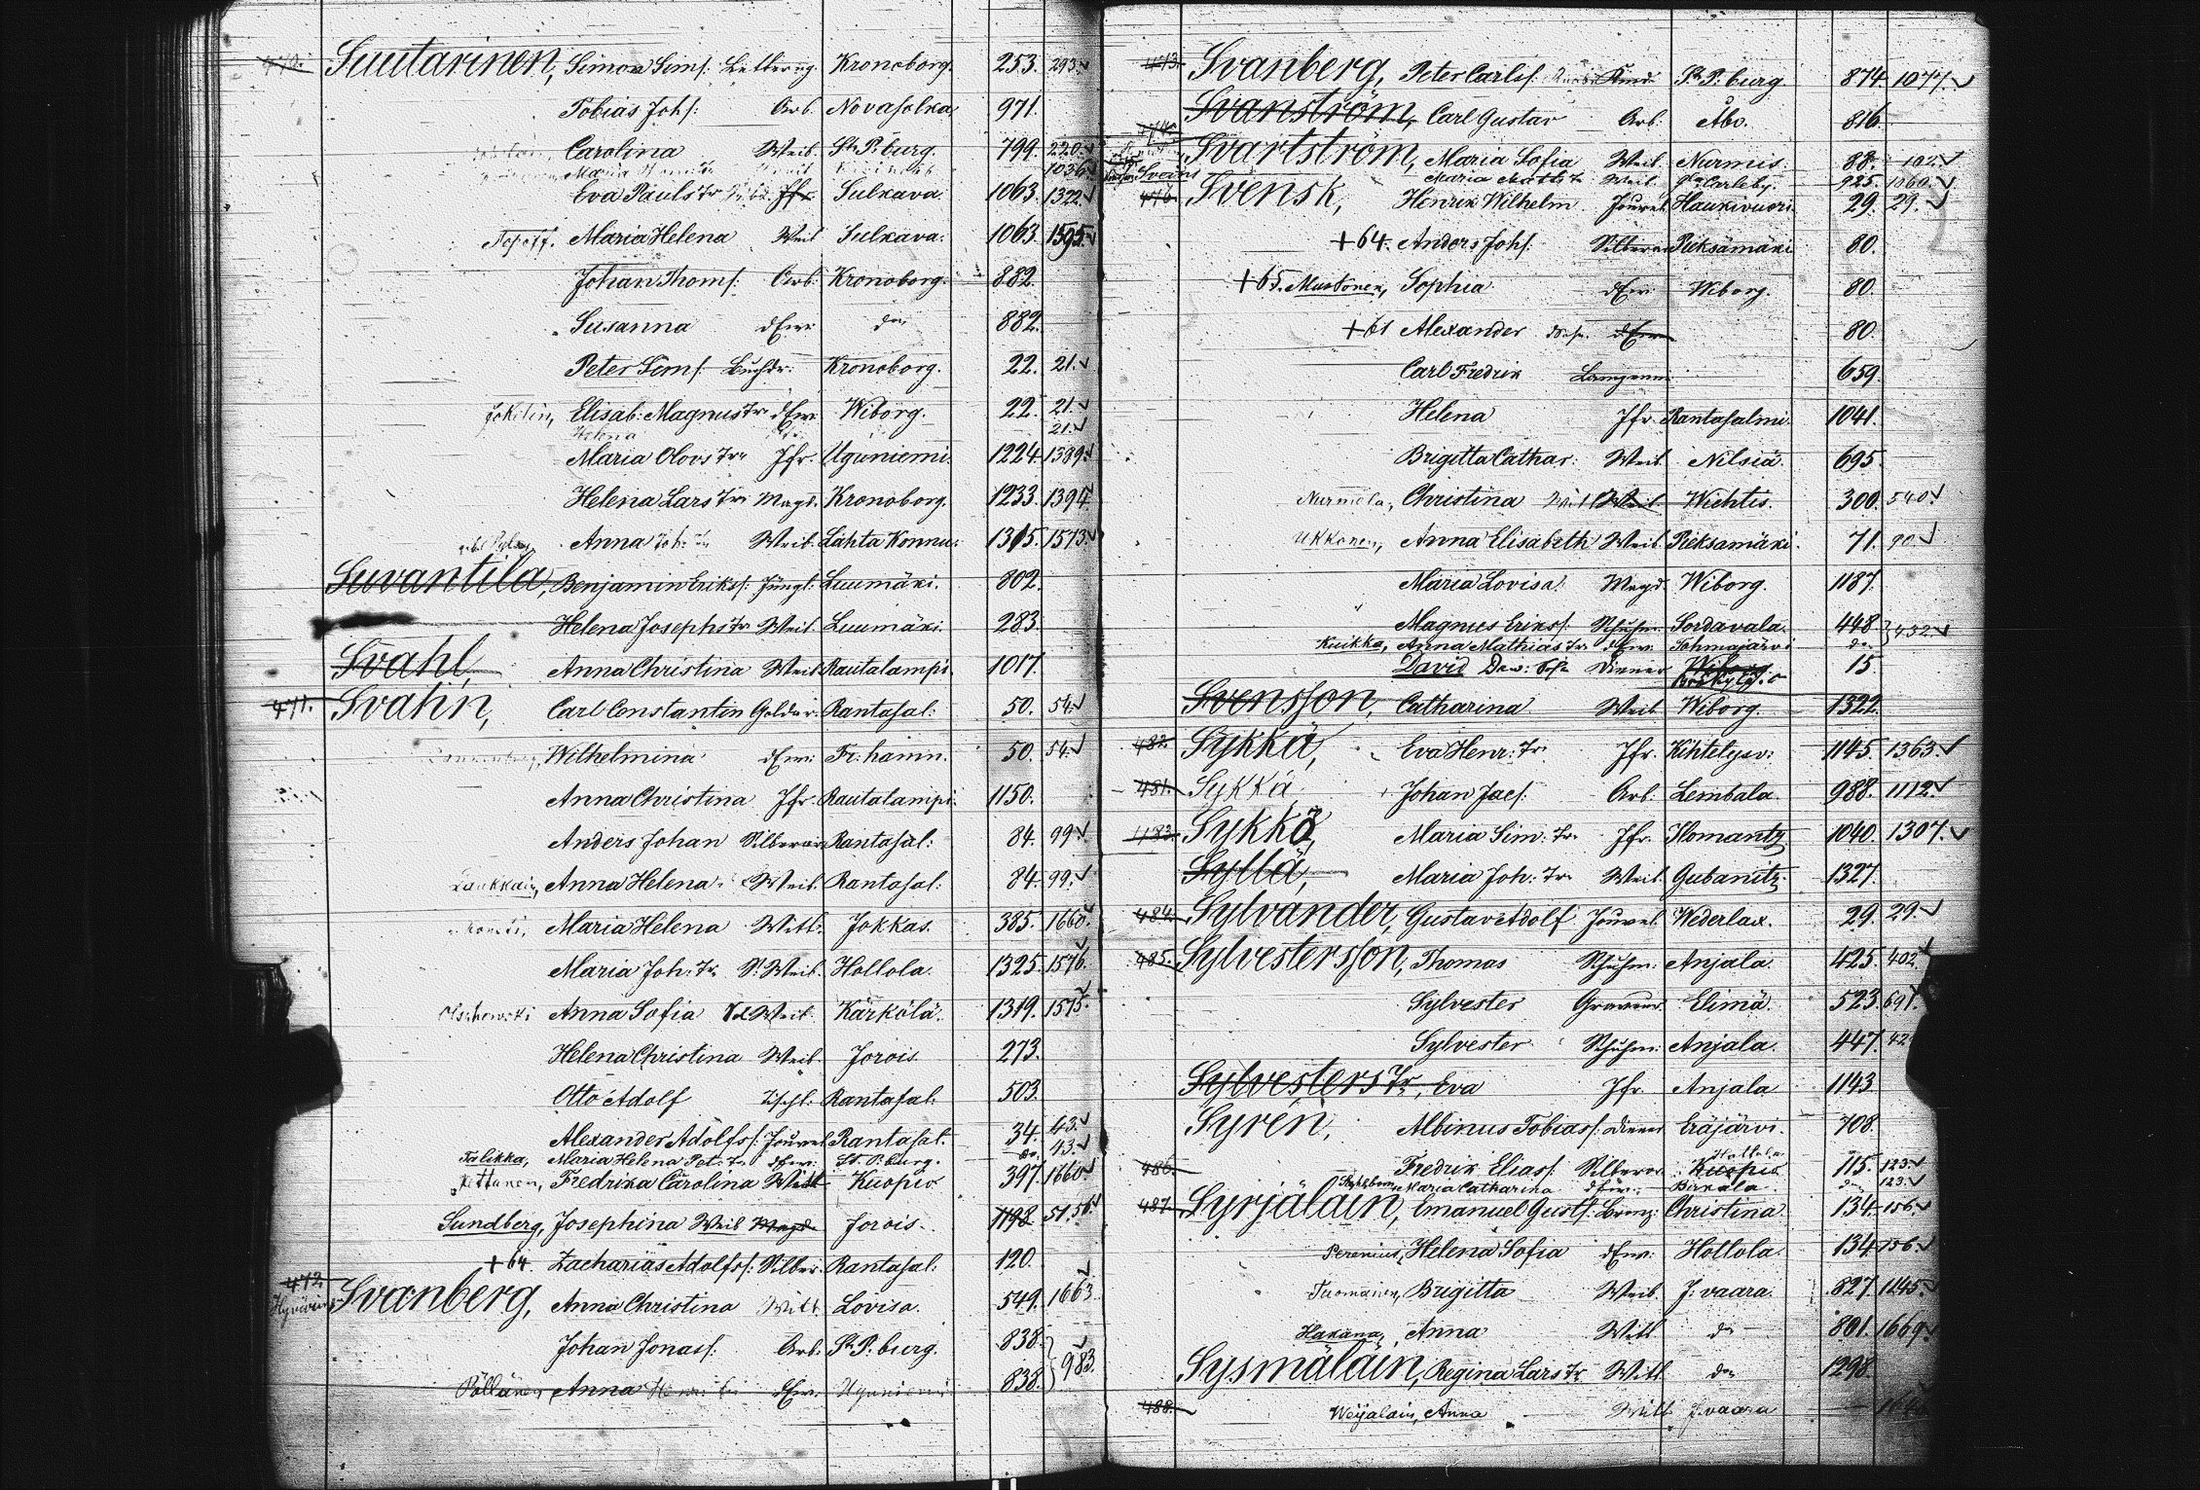 Suutarinen, Simon Sims: Kronoborg. 253. 293.
Tobias Johs: Arb. Novasolka 971.
Carolina Weib. St P. burg. 799. 220.
1036.
Eva Pauls Tr Jfr. Sulkava. 1063. 1322.
Popoff. Maria Helena Weib Sulkava. 1063. 1595.
Johan Thoms: Arb: Kronoborg. 882.
Susanna dEw: do 882.
Peter Sims: Buchdr: Kronoborg. 22. 21.
Jokelin, Elisab: Magnus Tr dEw: Wiborg. 22. 21.
Helena 21.
Maria Olovs Tr Jfr. Uguniemi. 1224. 1389.
Helena Lars Tr Magd. Kronoborg. 1233. 1394.
Anna Joh: Tr Weib. Lahta Konnu. 1315. 1573.
Suvantila, Benjamin Eriks: Jüngl: Luumäki. 802.
Helena Josephs Tr Weib. Luumäki. 283.
Svahl, Anna Christina Weib Rautalampi. 1017.
471. Svahn, Carl Constantin Goldar: Rantasal: 50. 54.
Wilhelmina dEw: Fr: hamn. 50. 54.
Anna Christina Jfr. Rautalampi. 1150.
Anders Johan Silberar: Rantasal: 84. 99.
Anna Helena Weib. Rantasal: 84. 99.
Maria Helena Witt: Jokkas. 385. 1660.
Maria Joh: Tr S. Weib. Hollola. 1325. 1576.
Olschewski Anna Sofia Weib. Kärkölä. 1319. 1575.
Helena Christina Weib. Jorois. 273.
Otto Adolf Tischl: Rantasal: 503.
Alexander Adolfs: Jouvel Rantasal: 34. 43.
Talikka, Maria Helena Pet: Tr dEw: St. P: burg. do. 43.
Fredrika Carolina Witt Kuopio 397. 1660.
Sundberg, Josephina Weib Magd. Jorois. 1198. 51. 56.
+64. Zacharias Adolfs: Silber. Rantasal: 120.
472
Svanberg, Anna Christina Witt Lovisa. 549. 1663.
Johan Jonas: Arb: St P: burg. 838.
983.
Pöllänen, Anna dEw. 838.
473. Svanberg, Peter Carls: St P: burg. 874. 1077.
Svanström, Carl Gustav Arb: Åbo. 816.
Svartström, Maria Sofia Weib. Nurmis. 88. 102.
Svens Maria Matts Tr Weib. Gla Carleby. 925. 1060.
476. Svensk, Henrik Wilhelm Jouvel. Haukivuori. 29. 29.
+64. Anders Johs: Silberar Pieksämäki 80.
+65. Mustonen, Sophia dEw: Wiborg. 80.
+61 Alexander dEw 80.
Carl Fredrik 659.
Helena Jfr. Rantasalmi. 1041.
Brigitta Cathar: Weib. Nilsiä. 695.
Nurmela, Christina Weib. Wichtis. 300. 540.
Ukkonen, Anna Elisabeth Weib. Pieksamäki. 71. 90.
Maria Lovisa. Magd. Wiborg. 1187.
Magnus Eriks: Schuhm. Sordavala. 448. 432.
Kuikka, Anna Mathias Tr dEw: Tohmajärvi do
David Dav: Diener Wiborg. 15.
Svensson, Catharina Weib. Wiborg. 1322.
482. Sykkä, Eva Henr: Tr. Jfr. Kihtelysv: 1145. 1363.
481. Sykkä, Johan Jacs: Arb: Lembala. 988. 1112.
483. Sykkö, Maria Sim: Tr. Jfr. Ilomantz 1040. 1307.
Syllä, Maria Joh: Tr. Weib. Gubanitz. 1327.
484. Sylvander, Gustav Adolf Jouvel. Wederlax. 29. 29.
485. Sylvestersson, Thomas Schuhm: Anjala. 425. 402.
Sylvester Graveur. Elimä. 523. 691.
Sylvester Schuhm: Anjala. 447. 42
Sylvesters Tr, Eva Jfr. Anjala 1143
Syren, Albinus Tobias: Diener Eräjärvi. 708.
Hollola
486. Fredrik Elias: Silberar. Kuopio 115. 123.
Maria Catharina dEw: Birkala do 123.
487. Syrjäläin, Emanuel Gusts: Bronz: Christina. 134. 156.
Perenius, Helena Sofia dEw: Hollola. 134. 156.
Tuomainen, Brigitta Weib. J: vaara. 827. 1245.
Hakana, Anna Witt do 801. 1669.
Sysmäläin, Regina Lars Tr Witt. do 1298.
488. Weijalain, Anna Witt J: vaara